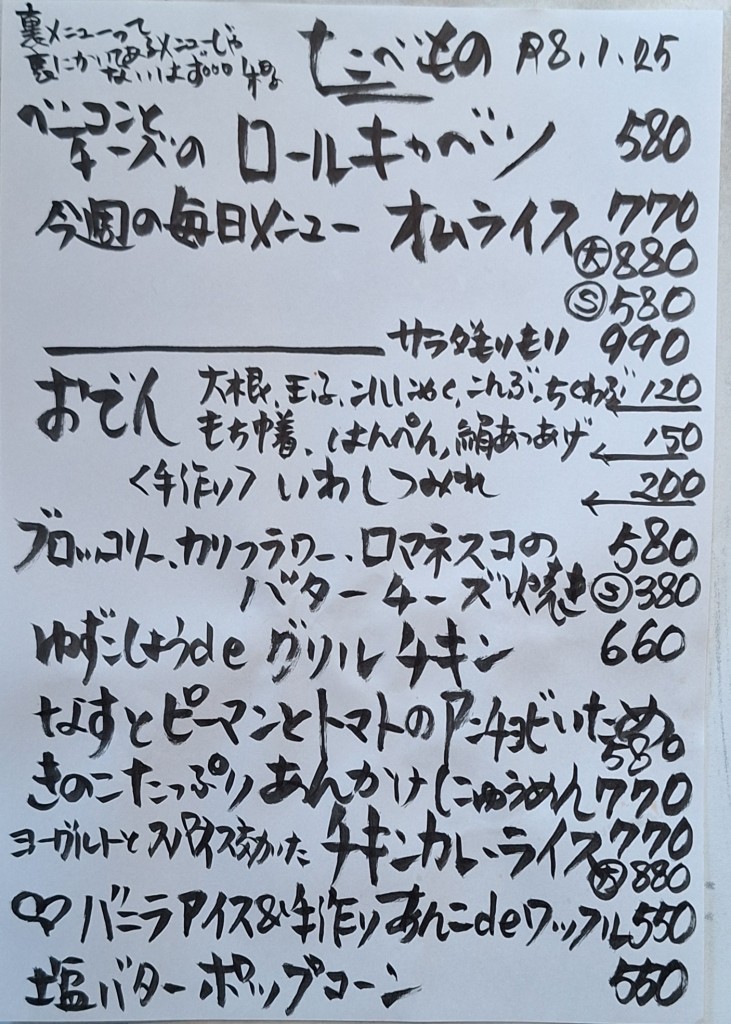 裏メニューって
裏にかいてあるメニューじゃ
ないはず。。。
たべもの R8.1.25
ベーコンと
チーズの ロールキャベツ 580
今週の毎日メニュー オムライス 770
大 880
S 580
サラダもりもり 990
おでん 大根、玉子、こんにゃく、こんぶ、ちくわぶ 120
もち巾着、はんぺん、絹あつあげ 150
<手作り> いわしつみれ 200
ブロッコリー、カリフラワー、ロマネスコの 580
バターチーズ焼き S 380
ゆずこしょうde グリルチキン 660
なすとピーマンとトマトのアンチョビいため
580
きのこたっぷりあんかけにゅうめん 770
ヨーグルトとスパイス効かた チキンカレーライス 770
大 880
♡バニラアイス&手作りあんこdeワッフル 550
塩バターポップコーン 550